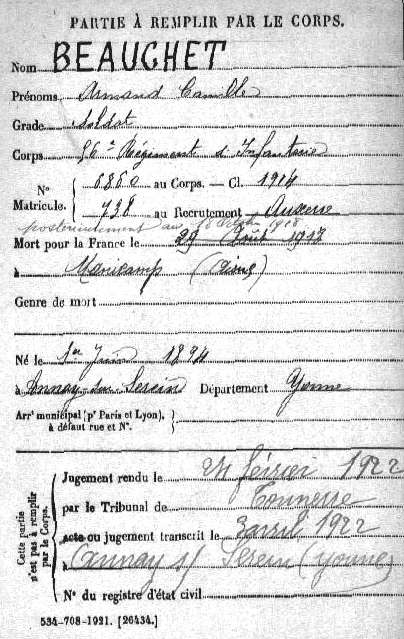 PARTIE À REMPLIR PAR LE CORPS.
Nom BEAUCHET
Prénoms Armand Camille
Grade soldat
Corps Régiment d'Infanterie
N° Matricule. 6860 au Corps. — Cl. 1914
738 au Recrutement Auxerre
postérieurement au 1918
Mort pour la France le 29 Août
à Manicamp (Aisne)
Genre de mort
Né le 1er Juin 1894
à Annay sur Serein Département Yonne
Arr' municipal (p' Paris et Lyon), à défaut rue et N°.
Cette partie n'est pas à remplir par le Corps.
Jugement rendu le février 1922
par le Tribunal de Tonnerre
acte ou jugement transcrit le 3 avril 1922
à Annay s/ Serein (Yonne)
N° du registre d'état civil
534-708-1921. [26434.]